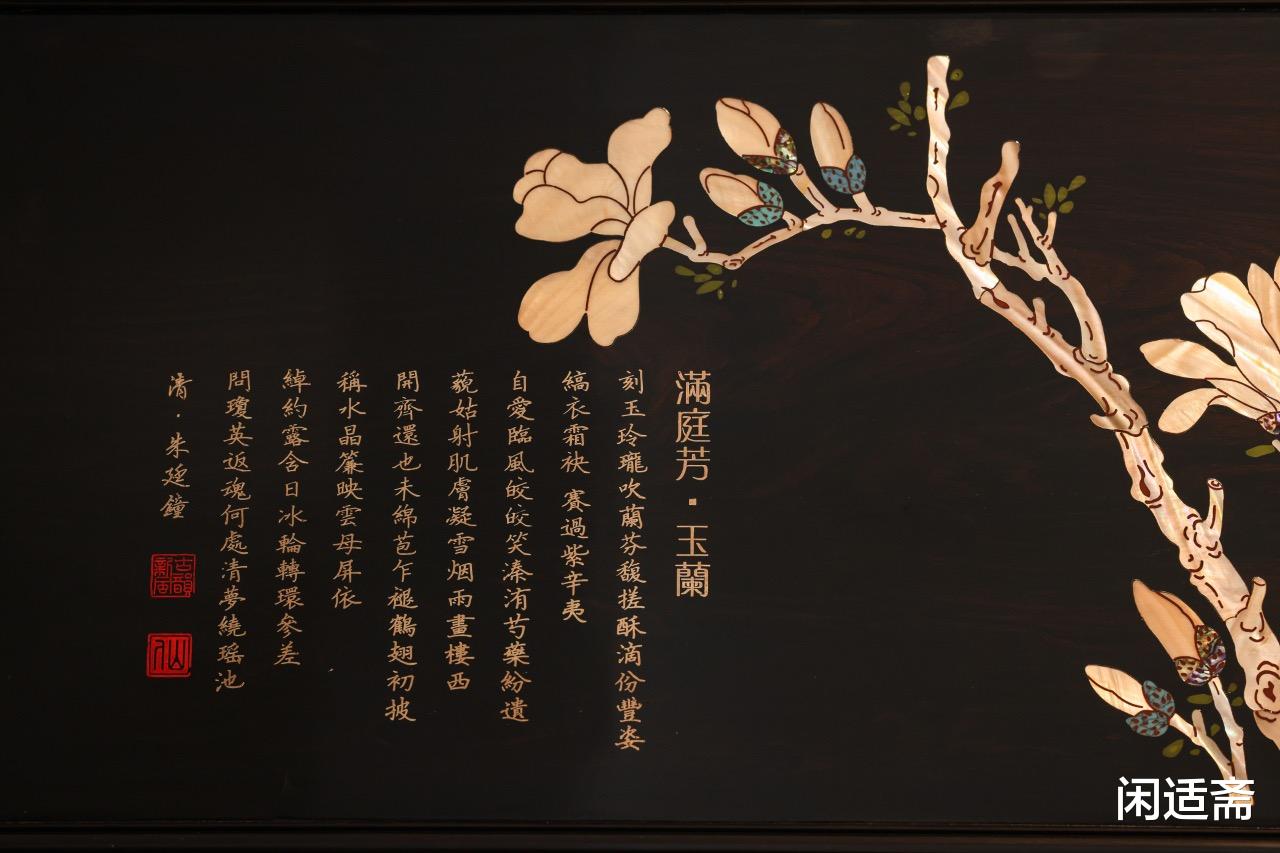 滿庭芳·玉蘭
刻玉玲瓏吹蘭芬馥搓酥滴份豐姿
縞衣霜袂 賽過紫辛夷
自愛臨風皎皎笑溱洧芍藥紛遺
藐姑射肌膚凝雪烟雨畫樓西
開齊還也未綿苞乍褪鶴翅初披
稱水晶簾映雲母屏依
綽約露含日冰輪轉環參差
問瓊英返魂何處清夢繞瑤池
清·朱廷鐘
古韻新居
仙
闲适斋